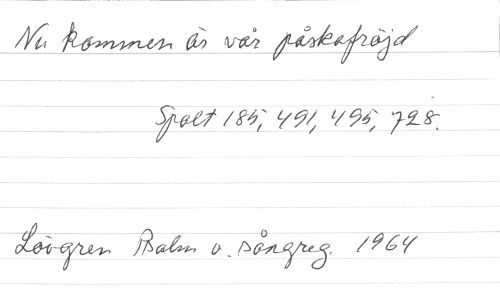 Nu kommen är vår påskafröjd
Spalt 185, 491, 495, 728.
Lövgren Psalm o. sångreg. 1964